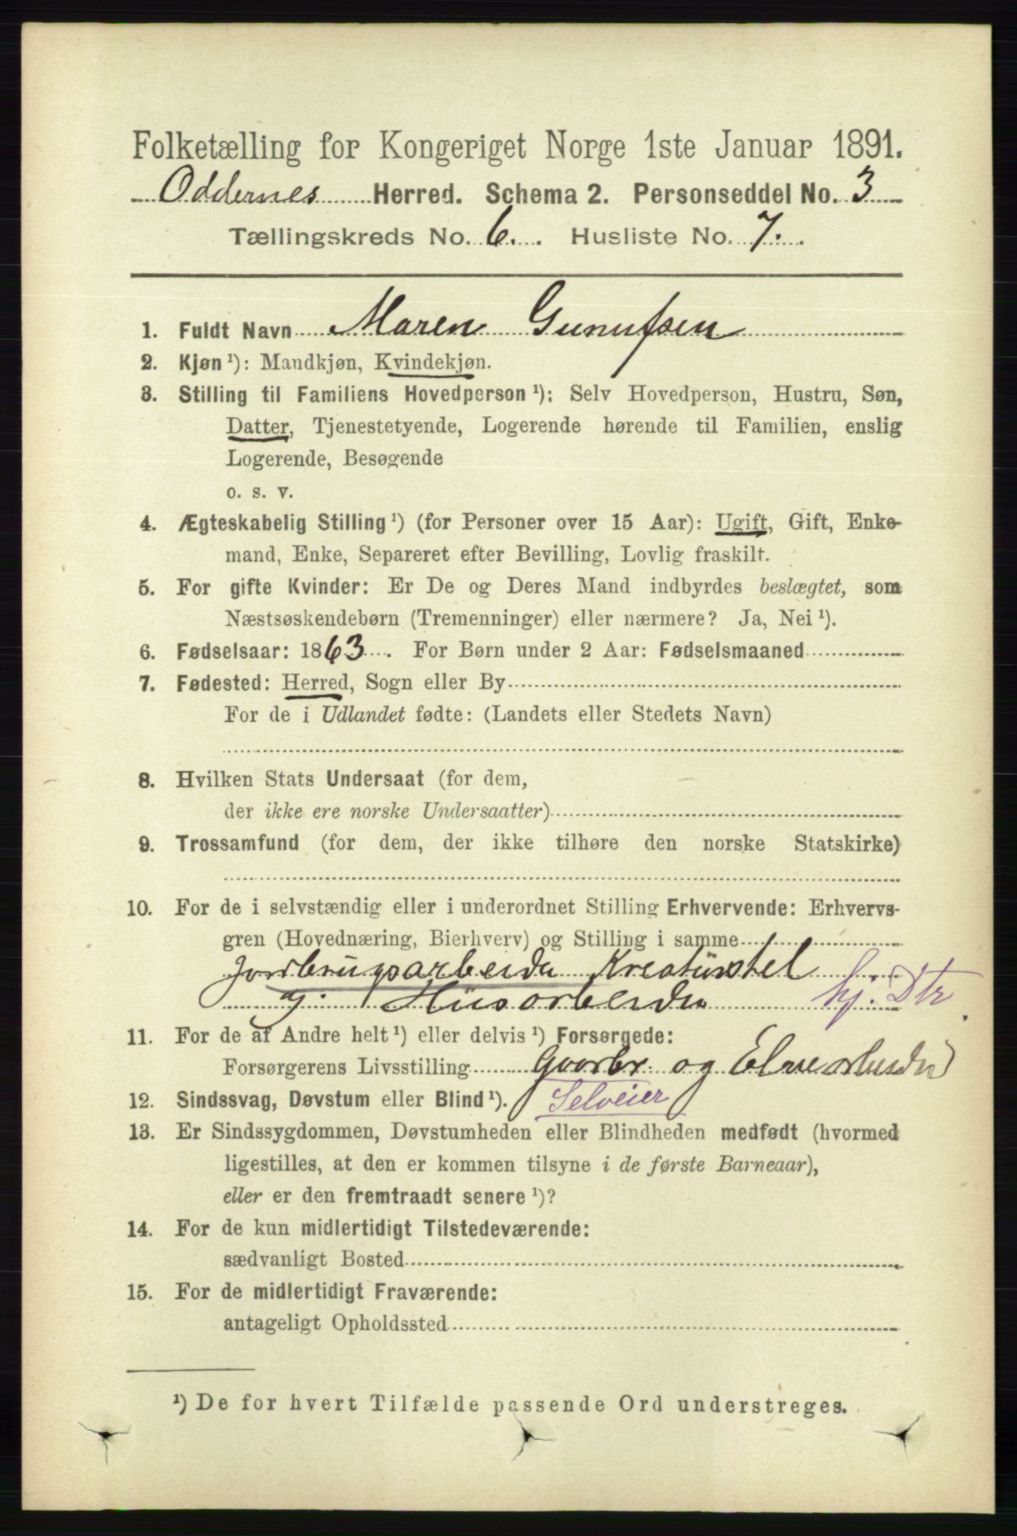 Folketælling for Kongeriget Norge 1ste Januar 1891.
Oddernes Herred. Schema 2. Personseddel No. 3
Tællingskreds No. 6. Husliste No. 7.
1. Fuldt Navn Maren Gunufsen
2. Kjøn ¹): Mandkjøn, Kvindekjøn.
3. Stilling til Familiens Hovedperson ¹): Selv Hovedperson, Hustru, Søn,
Datter, Tjenestetyende, Logerende hørende til Familien, enslig
Logerende, Besøgende
o. s. v.
4. Ægteskabelig Stilling ¹) (for Personer over 15 Aar): Ugift, Gift, Enke-
mand, Enke, Separeret efter Bevilling, Lovlig fraskilt.
5. For gifte Kvinder: Er De og Deres Mand indbyrdes beslægtet, som
Næstsøskendebørn (Tremenninger) eller nærmere? Ja, Nei ¹).
6. Fødselsaar: 1863. For Børn under 2 Aar: Fødselsmaaned
7. Fødested: Herred, Sogn eller By
For de i Udlandet fødte: (Landets eller Stedets Navn)
8. Hvilken Stats Undersaat (for dem,
der ikke ere norske Undersaatter)
9. Trossamfund (for dem, der ikke tilhøre den norske Statskirke)
10. For de i selvstændig eller i underordnet Stilling Erhvervende: Erhvervs-
gren (Hovednæring, Bierhverv) og Stilling i samme
Jordbrugsarbeide Kreaturstel
g. Husarbeide hj. Dtr.
11. For de af Andre helt ¹) eller delvis ¹) Forsørgede:
Forsørgerens Livsstilling Gaarbr. og
12. Sindssvag, Døvstum eller Blind ¹). Selveier
13. Er Sindssygdommen, Døvstumheden eller Blindheden medfødt (hvormed
ligestilles, at den er kommen tilsyne i de første Barneaar),
eller er den fremtraadt senere ¹)?
14. For de kun midlertidigt Tilstedeværende:
sædvanligt Bosted
15. For de midlertidigt Fraværende:
antageligt Opholdssted
¹) De for hvert Tilfælde passende Ord understreges.